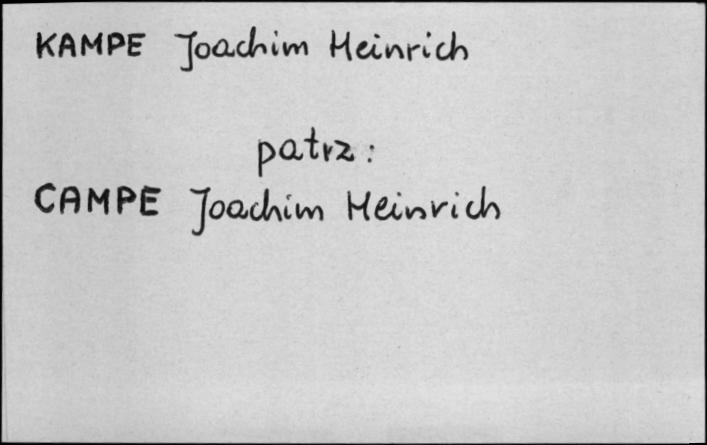 KAMPE Joachim Heinrich
patrz:
CAMPE Joachim Heinrich